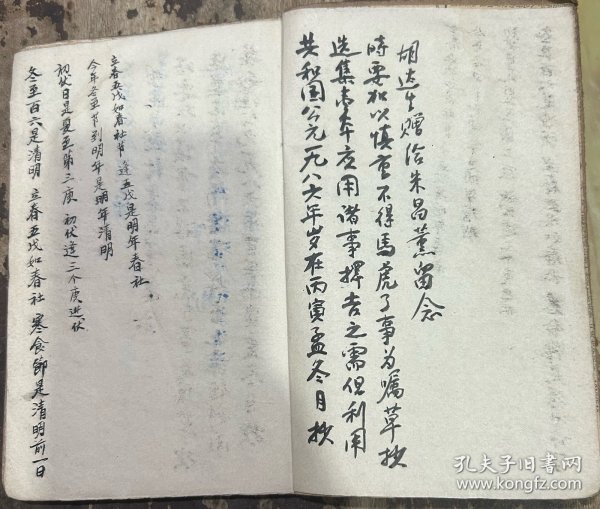 冬至百六是清明 立春五戊如春社 寒食節是清明前一日
初伏日是夏至第三庚 初伏逢三个庚进伏
今年冬至节到明年是明年清明
立春五戊如春社节 逢五戊是明年春社
共和国公元一九八六年岁在丙寅孟冬月抄
选集应用诸事择吉之需但利用
時要加以慎重不得馬虎了事为嘱草抄
胡达生赠给朱昌薰留念
孔夫子旧书网
www.kongfz.com